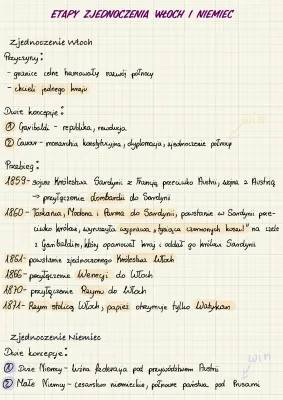 ETAPY ZJEDNOCZENIA WŁOCH I NIEMIEC
Zjednoczenie Włoch
Przyczyny:
- granice celne hamowały rozwój północy
- chcieli jednego kraju
Dwie koncepcje:
① Garibaldi - republika, rewolucja
② Cavour - monarchia konstytucyjna, dyplomacja, zjednoczenie północy
Przebieg:
1859 - sojusz Królestwa Sardynii z Francją przeciwko Austrii, wojna z Austrią
→ przyłączenie Lombardii do Sardynii
1860 - Toskania, Modena i Parma do Sardynii, powstanie w Sardynii prze-
ciwko królowi, wyruszyła wyprawa „tysiąca czerwonych koszul" na czele
z Garibaldim, który opanował kraj i oddał go królowi Sardynii
1861 - powstanie zjednoczonego Królestwa Włoch
1866 - przyłączenie Wenecji do Włoch
1870 - przyłączenie Rzymu do Włoch
1871 - Rzym stolicą Włoch, papież otrzymuje tylko Watykan
Zjednoczenie Niemiec
Dwie koncepcje: win
① Duże Niemcy - luźna federacja pod przywództwem Austrii
② Małe Niemcy - cesarstwo niemieckie, północne państwa pod Prusami